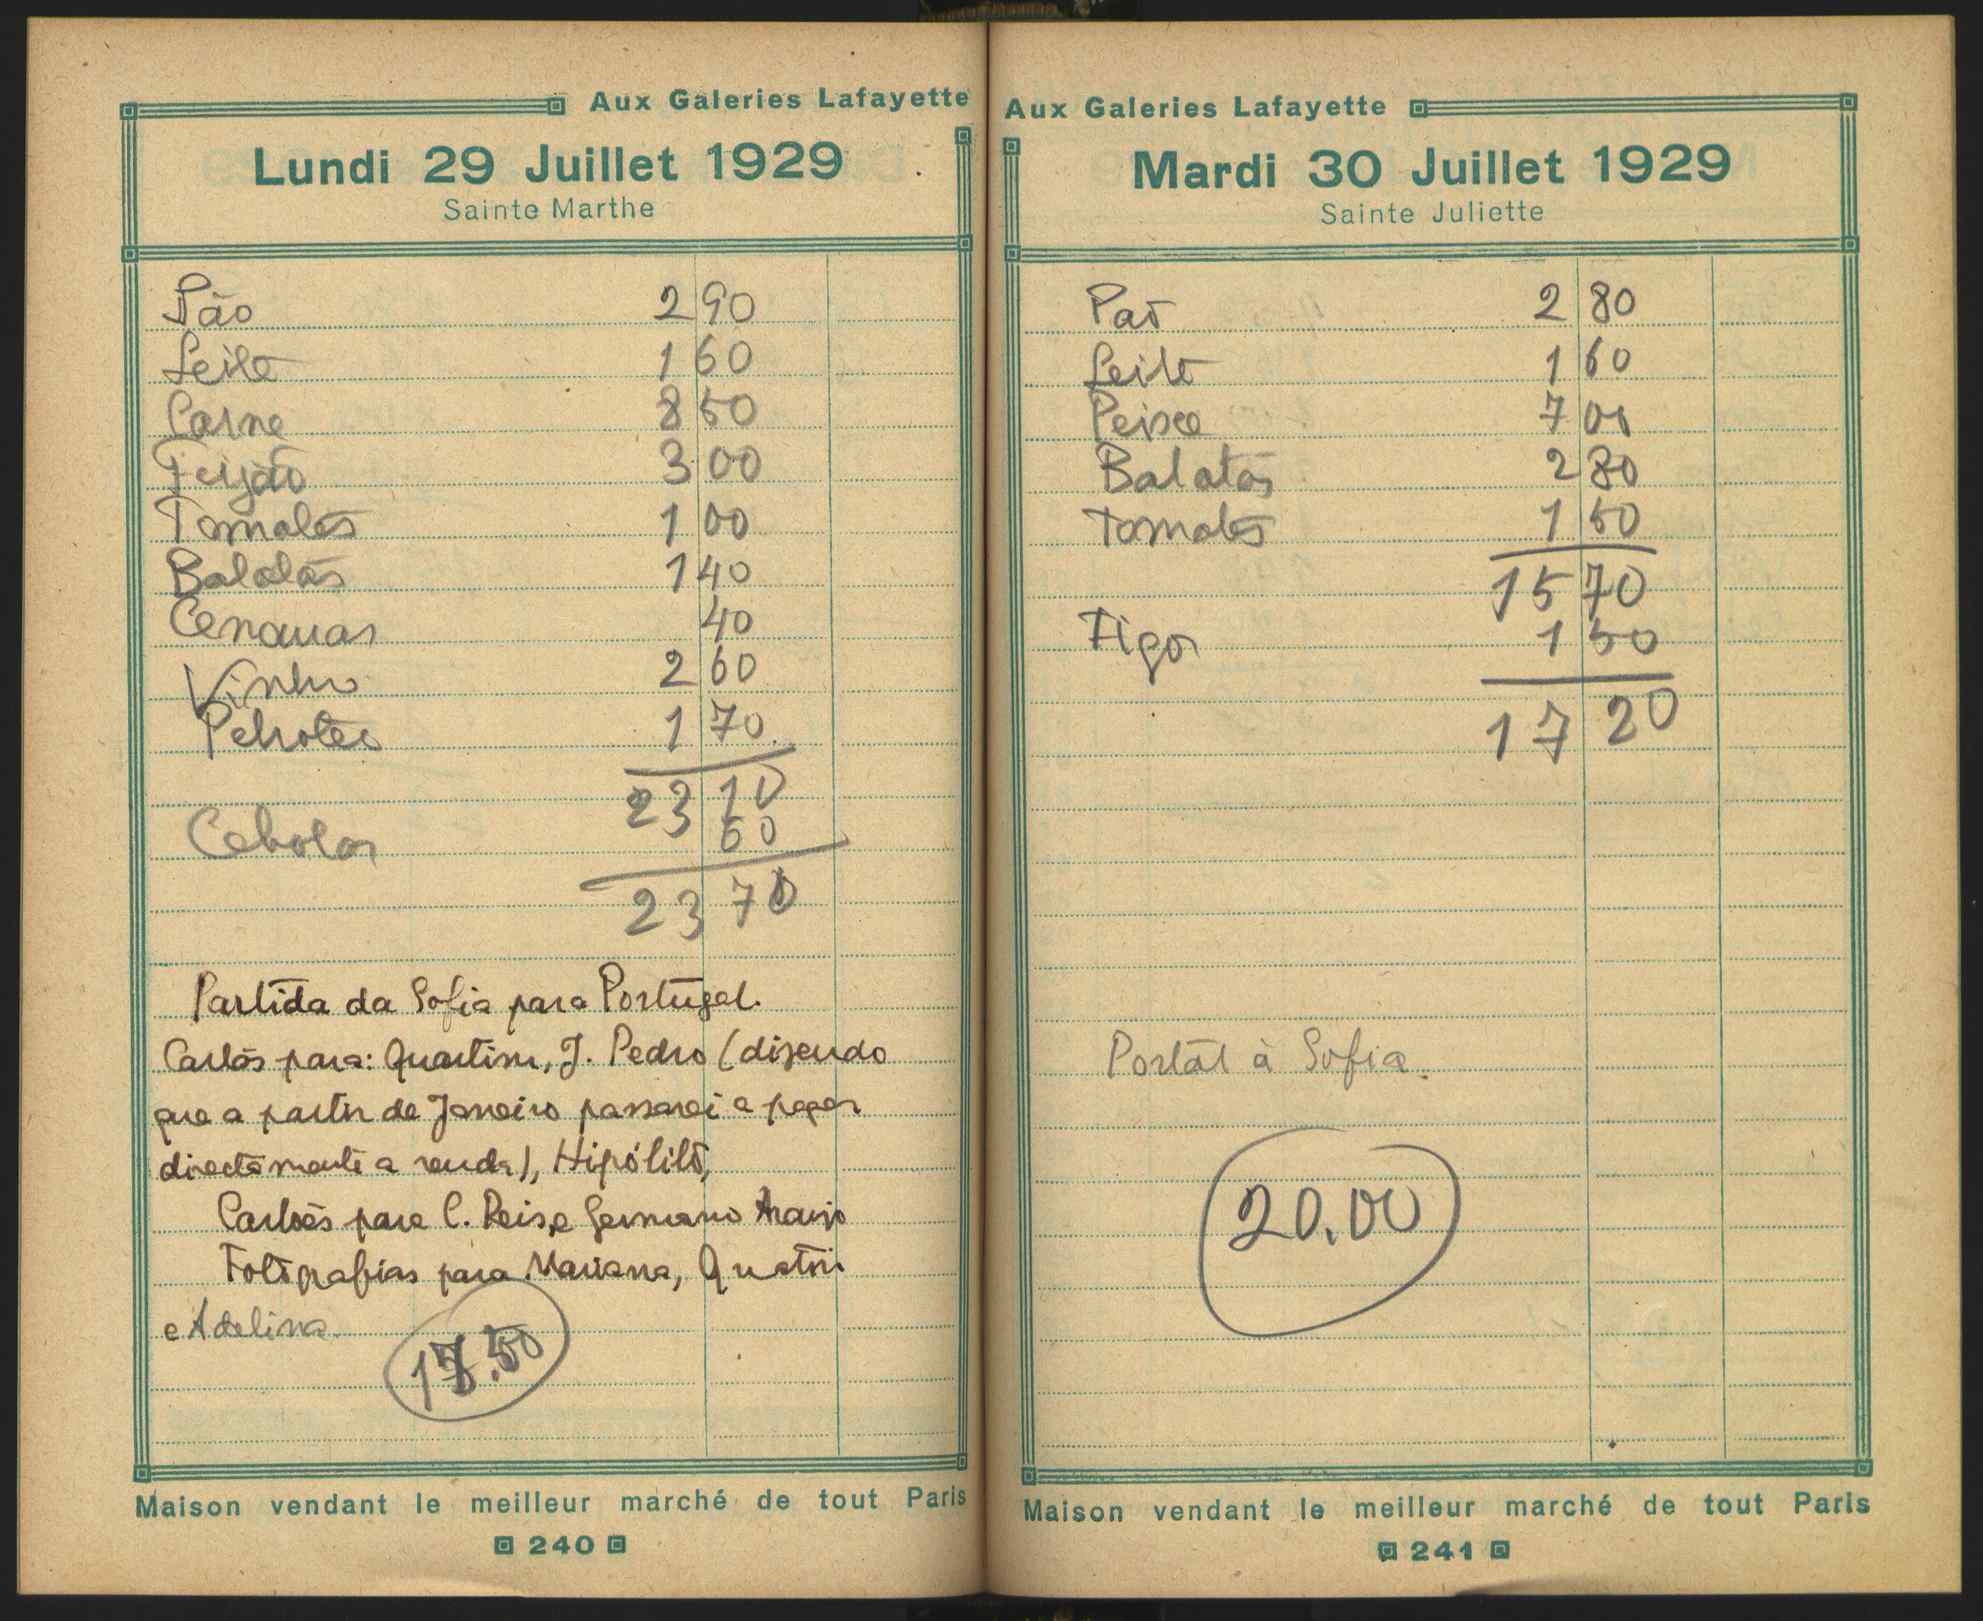 Aux Galeries Lafayette
Lundi 29 Juillet 1929
Sainte Marthe
Pão 2 90
Leite 1 60
Carne 8 50
Feijão 3 00
Tomates 1 00
Batatas 1 40
Cenouras 40
Vinho 2 60
Petroleo 1 70
23 10
Cebolas 60
23 70
Partida da Sofia para Portugal.
Cartas para: Quartim, J. Pedro (dizendo
que a partir de Janeiro passarei a pagar
directamente a renda), Hipólito,
Cartões para C. Reis, e Germano Araujo
Fotografias para Mariana,
e Adelina.
Maison vendant le meilleur marché de tout Paris
240
Aux Galeries Lafayette
Mardi 30 Juillet 1929
Sainte Juliette
Paõ 2 80
Leite 1 60
Peixe 7 00
Batatas 2 80
Tomates 1 50
15 70
Figos 1 50
17 20
Postal à Sofia.
20.00
Maison vendant le meilleur marché de tout Paris
241